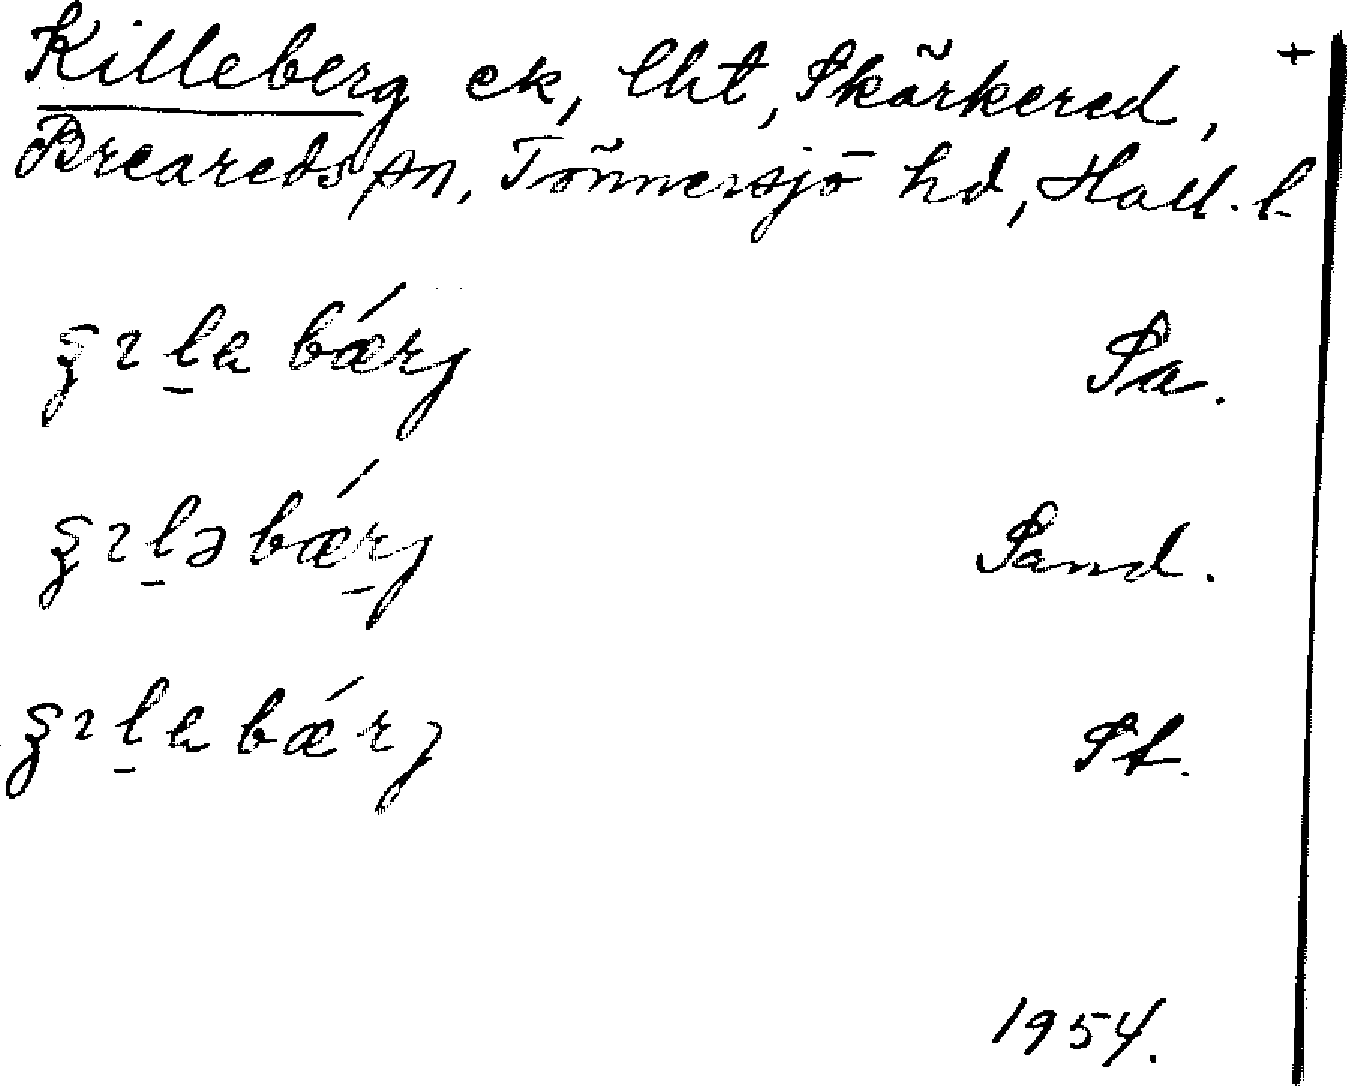 Killeberg ek, lht, Skärkered, +
Breareds sn, Tönnersjö hd, Hall. l.
ʂɿl̠a bǽrj Sa.
ʂɿl̠ə bǽr̠j Sand.
ʂɿl̠a bǽrj St.
1954.